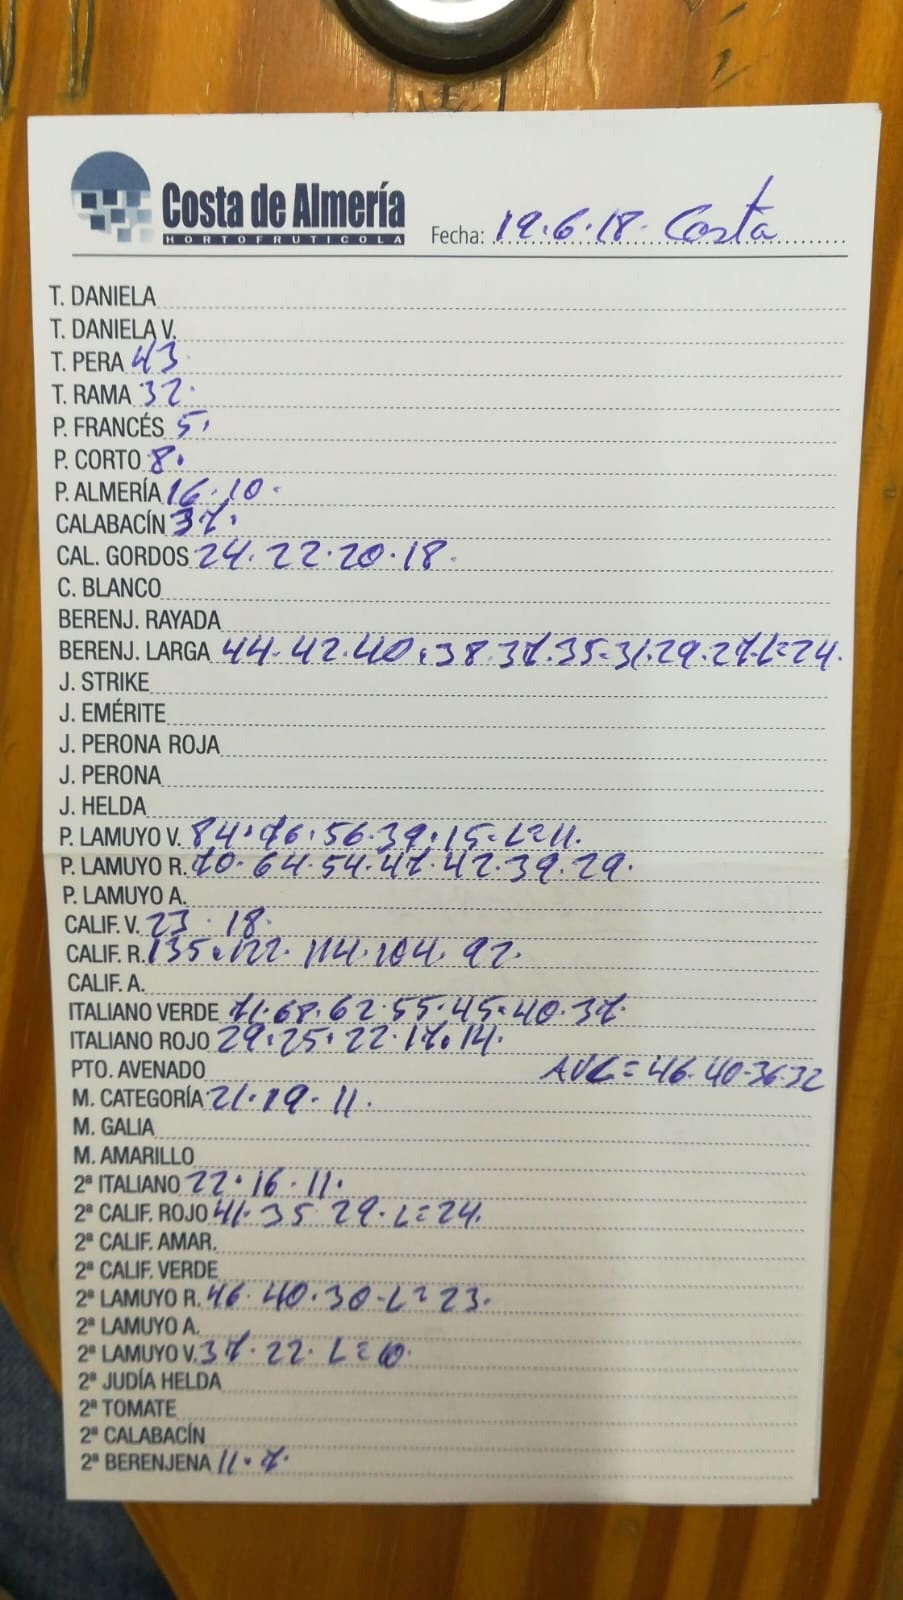 Costa de Almería
HORTOFRUTICOLA
Fecha: 19.6.18. Costa
T. DANIELA
T. DANIELA V.
T. PERA 43
T. RAMA 32.
P. FRANCÉS 5.
P. CORTO 8.
P. ALMERÍA 16.10.
CALABACÍN 37.
CAL. GORDOS 24.22.20.18.
C. BLANCO
BERENJ. RAYADA
BERENJ. LARGA 44.42.40.38.37.35.31.29.27.L=24.
J. STRIKE
J. EMÉRITE
J. PERONA ROJA
J. PERONA
J. HELDA
P. LAMUYO V. 84.76.56.39.15-L=11.
P. LAMUYO R. 70.64.54.47.42.39.29.
P. LAMUYO A.
CALIF. V. 23.18.
CALIF. R. 135.122.114.104.92.
CALIF. A.
ITALIANO VERDE 71.68.62.55.45.40.37
ITALIANO ROJO 29.25.22.17.14.
PTO. AVENADO AVE=46.40-36-32
M. CATEGORÍA 21.19.11.
M. GALIA
M. AMARILLO
2ª ITALIANO 22.16.11.
2ª CALIF. ROJO 41.35 29.L=24.
2ª CALIF. AMAR.
2ª CALIF. VERDE
2ª LAMUYO R. 46.40.30-L=23.
2ª LAMUYO A.
2ª LAMUYO V. 37.22.L=
2ª JUDÍA HELDA
2ª TOMATE
2ª CALABACÍN
2ª BERENJENA 11.7.